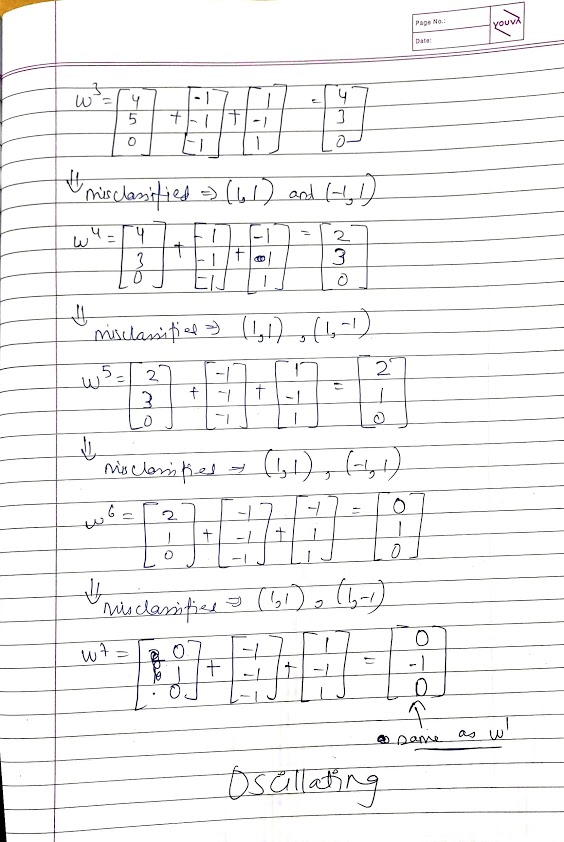 Page No.:
Date:
YOUVA
w³ = [4 5 0] + [-1 -1 -1] + [1 -1 1] = [4 3 0]
⇓ misclassified ⇒ (1,1) and (-1,1)
w⁴ = [4 3 0] + [-1 -1 -1] + [-1 1 1] = [2 3 0]
⇓ misclassifies ⇒ (1,1), (1,-1)
w⁵ = [2 3 0] + [-1 -1 -1] + [1 -1 1] = [2 1 0]
⇓ misclassifies ⇒ (1,1), (-1,1)
w⁶ = [2 1 0] + [-1 -1 -1] + [-1 1 1] = [0 1 0]
⇓ misclassifies ⇒ (1,1), (1,-1)
w⁷ = [0 1 0] + [-1 -1 -1] + [1 -1 1] = [0 -1 0]
↑
same as w¹
Oscillating